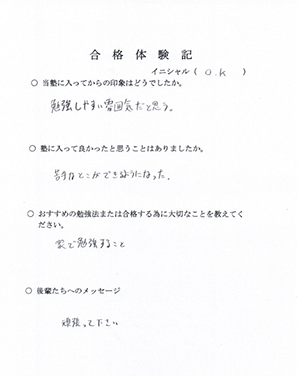 合格体験記
イニシャル ( O.K )
○ 当塾に入ってからの印象はどうでしたか。
勉強しやすい雰囲気だと思う。
○ 塾に入って良かったと思うことはありましたか。
苦手なとこができるようになった。
○ おすすめの勉強法または合格する為に大切なことを教えてく
ださい。
家で勉強すること
○ 後輩たちへのメッセージ
頑張って下さい